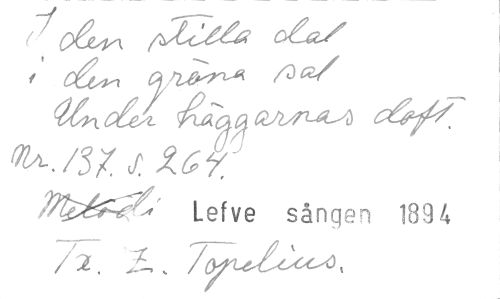 I den stilla dal
i den gröna sal
Under häggarnas doft.
Nr. 137. s. 264.
Melodi Lefve sången 1894
Tx. Z. Topelius.